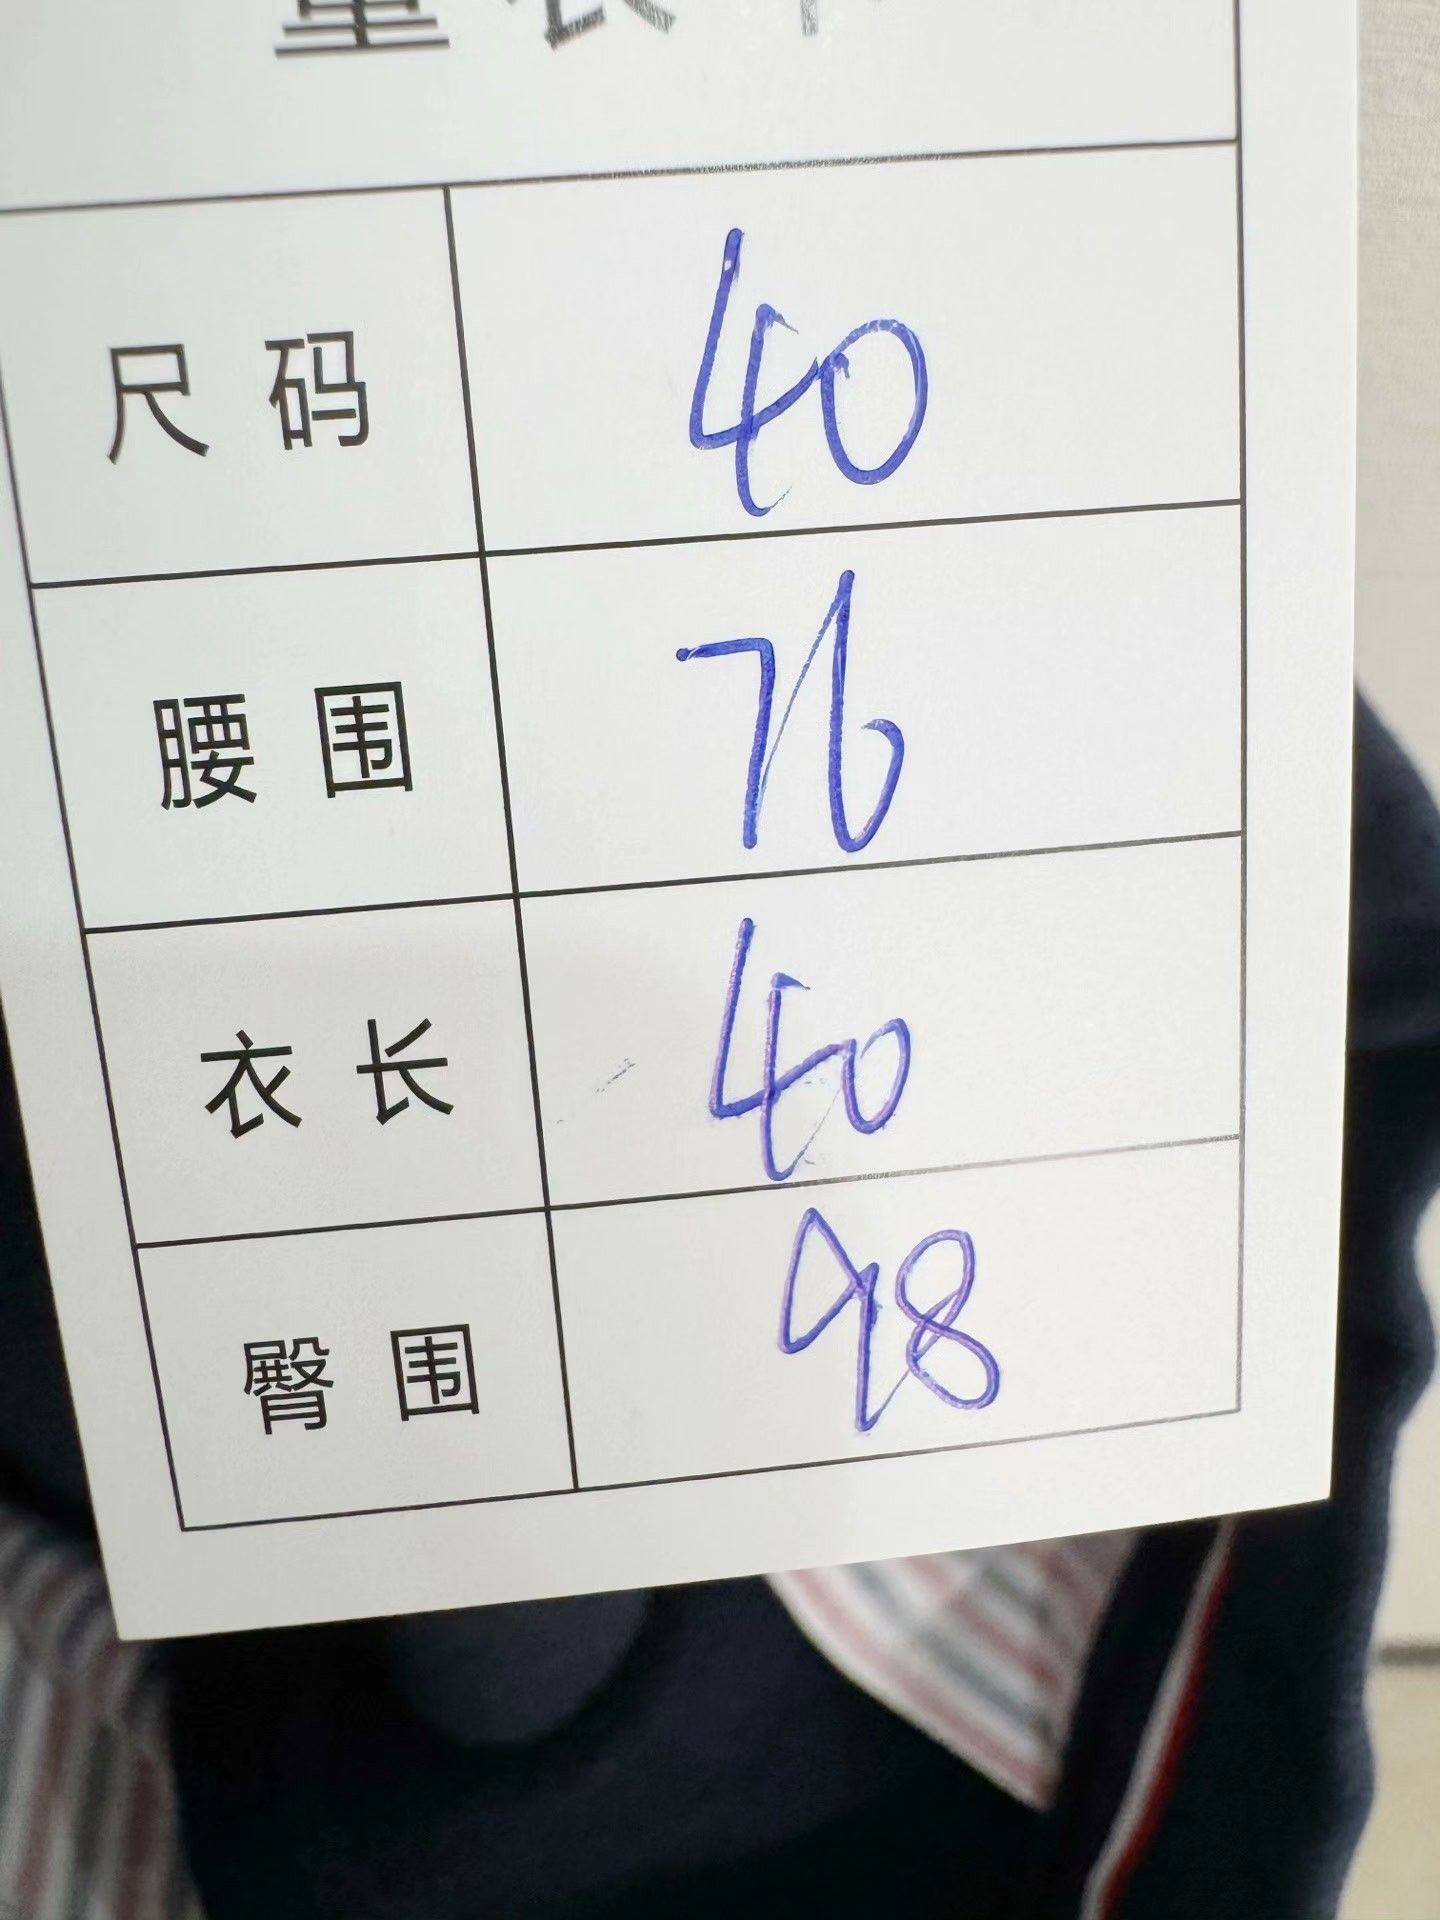 尺码 40
腰围 76
衣长 40
臀围 98